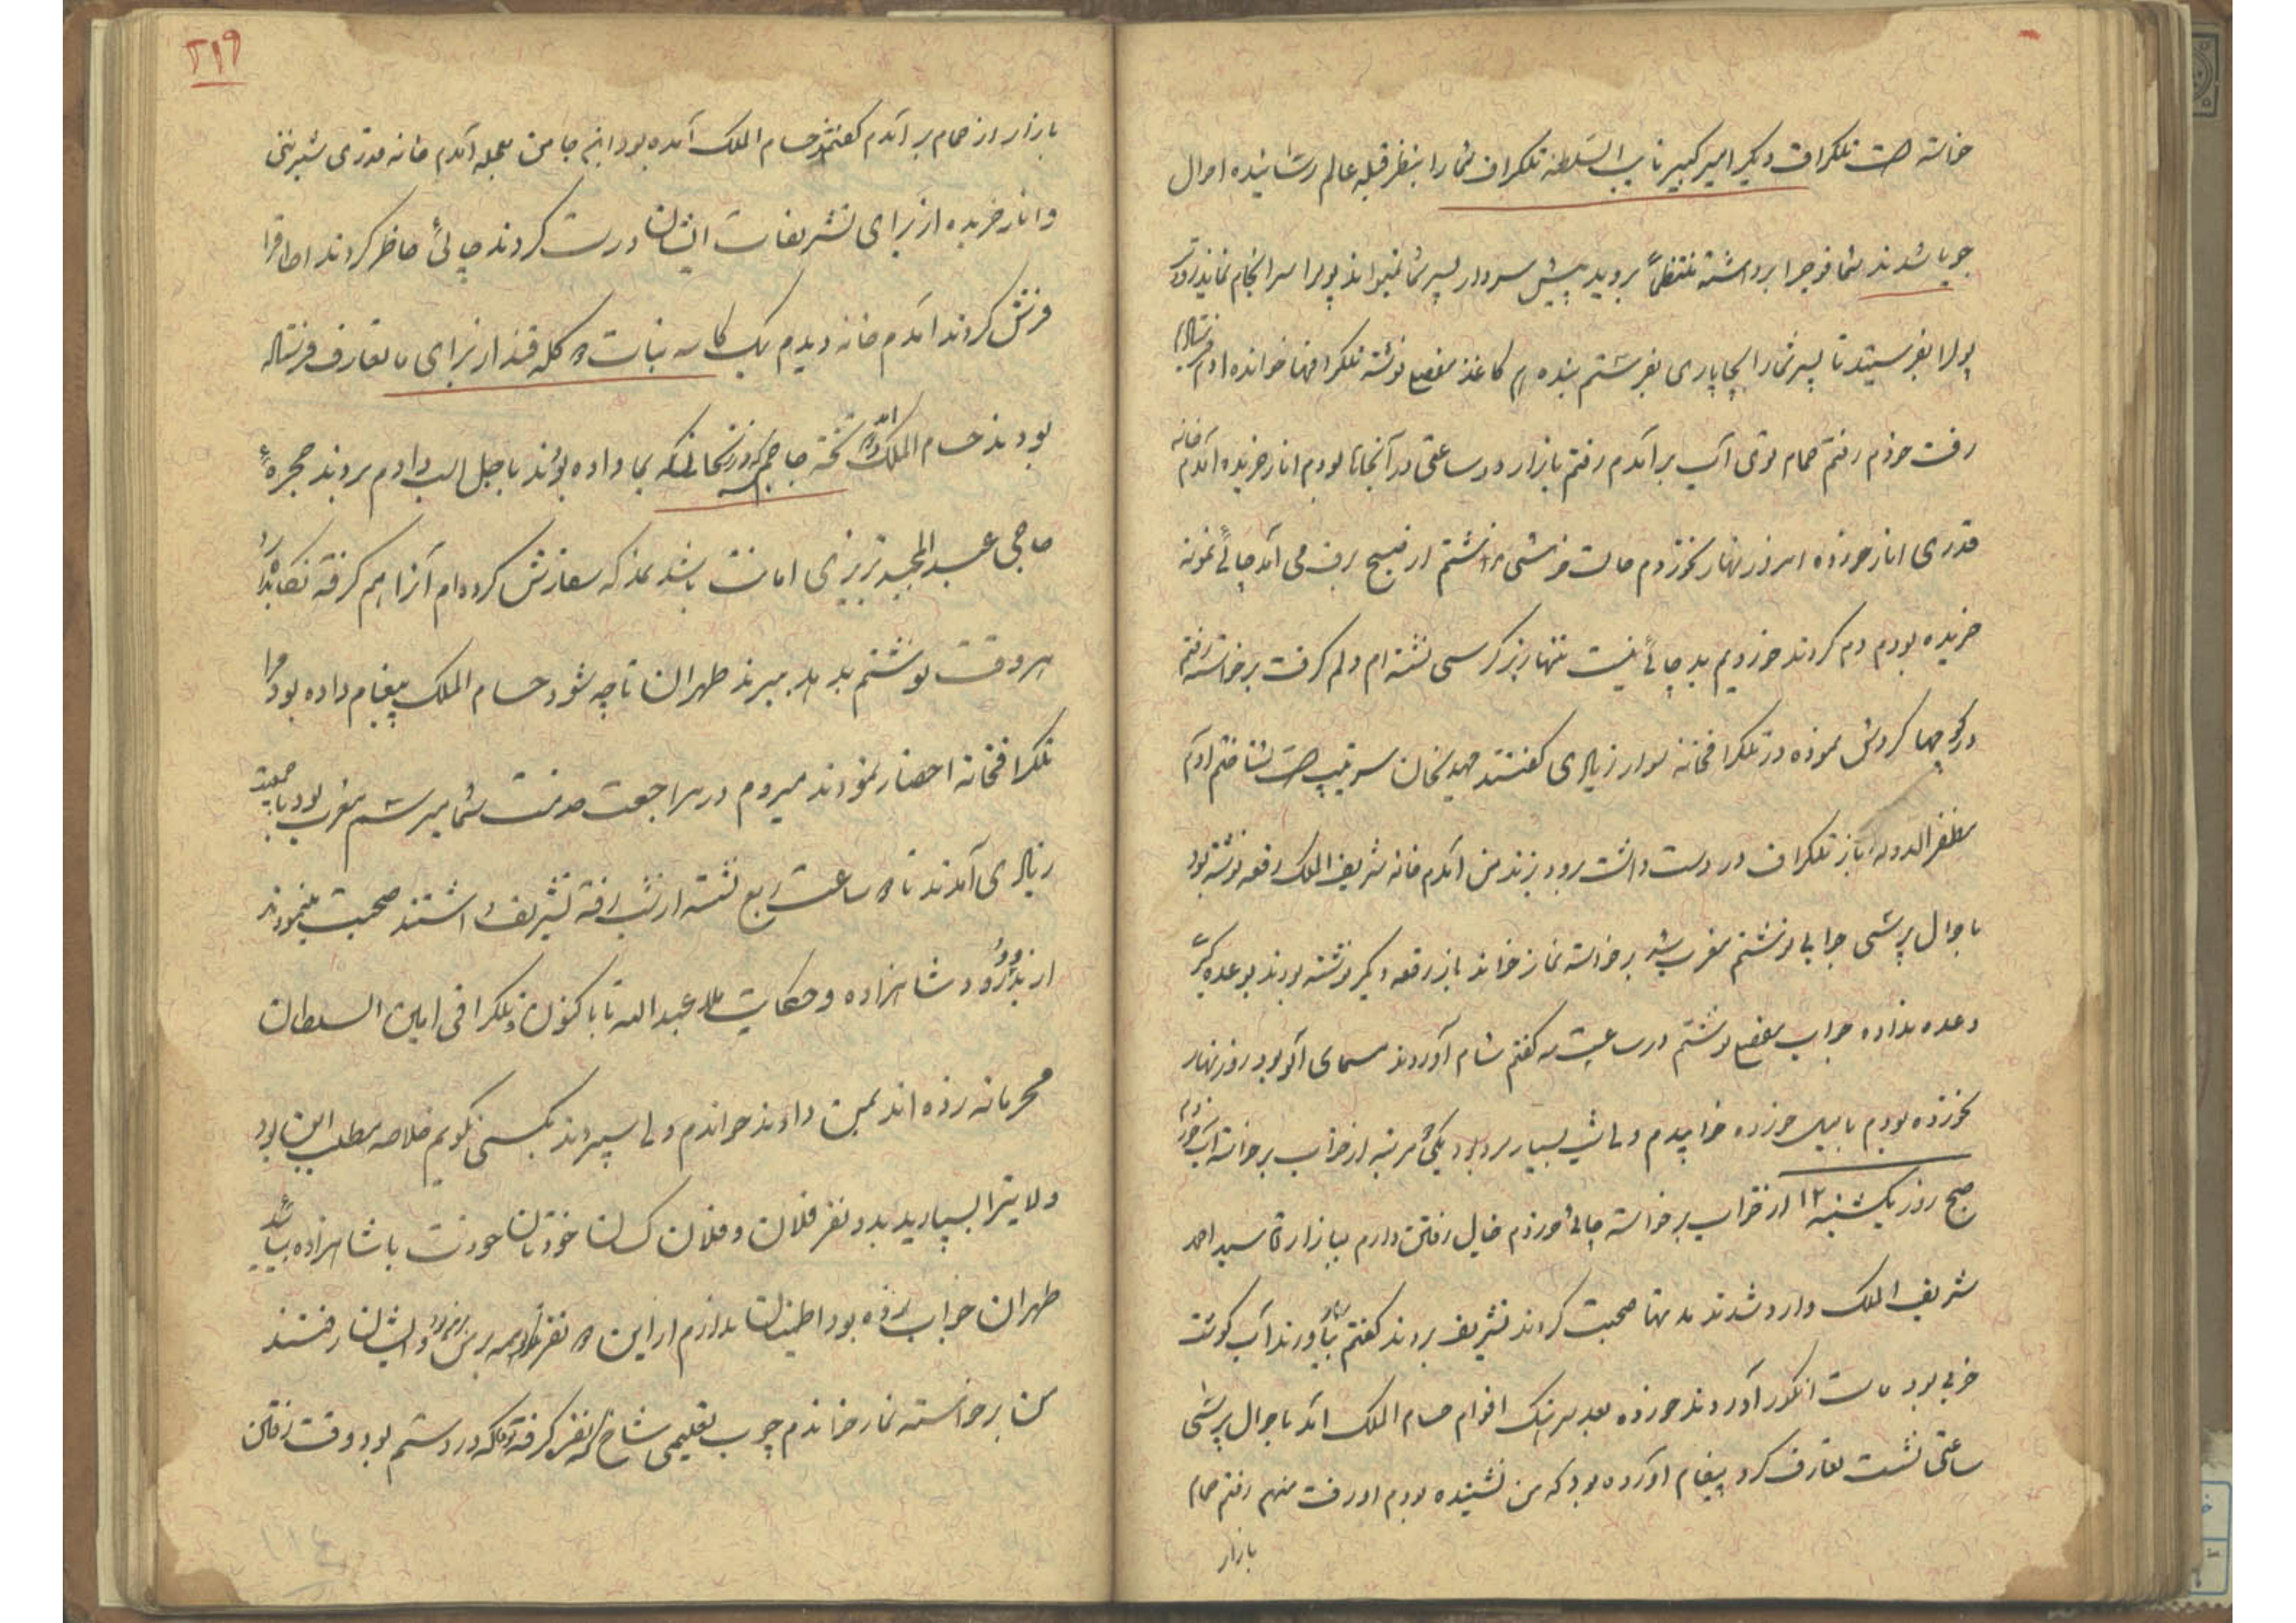 خواسته است تلکراف دیکر امیر کبیر نایب السلطنه تلکراف شما را بنظر قبله عالم رسانیده احوال
جویا شدند شما فوجرا برداشته منتظماً بروید پیش سردار پسر شما نمیتواند پولرا سرانجام نماید
پولرا بفرستید تا پسر شما را بچاپاری بفرستم بنده هم کاغذ مفصل نوشته تلکرافها خوانده آدم فرستاد
رفت خودم رفتم حمام توی آب برآمدم رفتم بازار دو ساعتی در آنجاها بودم انار خریده آمدم خانه
قدری انار خورده امروز نهار نخوردم حالت خوشی نداشتم از صبح برف می آمد چائی نمونه
خریده بودم دم کردند خوردیم بد چائی نیست تنها زیر کرسی نشسته ام دلم کرفت برخواسته رفتم
در کوچها کردش نموده در تلکرافخانه سوار زیادی کفتند مهدیخان سرتیپ است شناختم آدم
مظفرالدوله باز تلکراف در دست داشت برود بزند من آمدم خانه شریف الملک رقعه نوشته بود
باحوال پرسی جوابی نوشتم مغرب شد برخواسته نماز خواند باز رقعه دیکر نوشته بودند
وعده نداده جواب مفصل نوشتم در ساعت سه کفتم شام آوردند روز نهار
نخورده بودم با میل خورده خوابیدم ولی شب بسیار سرد بود یکی دو مرتبه از خواب برخواسته آب خوردم
صبح روز یکشنبه ۱۲ از خواب برخواسته چائی خوردم خیال رفتن دارم ببازار سید احمد
شریف الملک وارد شدند مدتها صحبت کردند تشریف بردند کفتم نهار بیاورند آب کوشت
خوبی بود ماست انکور آوردند خورده بعد سرهنک اقوام حسام الملک آمد باحوال پرسی
ساعتی نشست تعارف کرد پیغام آورده بود که من نشنیده بودم او رفت منهم رفتم حمام
بازار
۲۱۹
بازار از حمام برآمدم کفتند حسام الملک آمده بود اینجا من بعجله آمدم خانه قدری شیرینی
و انار خریده از برای تشریفات ایشان درست کردند چائی حاضر کردند اطاقرا
فرش کردند آمدم خانه دیدم یک کاسه نبات کله قند از برای ما تعارف فرستاده
بودند حسام الملک تخته جاجم که بما داده بودند با جل اسب دادم بردند حجره
حاجی عبدالمجید تبریزی امانت باشد نمد که سفارش کرده ام آنرا هم کرفته نکاهدارد
هر وقت نوشتم بدهد ببرند طهران تا چه شود حسام الملک پیغام داده بود مرا
تلکرافخانه احضار نمودند میروم در مراجعت خدمت شما میرسم مغرب بود با جمعیت
زیادی آمدند تا ساعت ربع شب رفته تشریف داشتند صحبت مینمودند
از شاهزاده و حکایت ملا عبدالله تا باکنون تلکرافی امین السلطان
محرمانه زده اند بمن دادند خواندم ولی سپردند بکسی نکویم خلاصه مطلب این بود
ولایترا بسپارید بدو نفر فلان و فلان کسان خودتان خودت با شاهزاده بیائید
طهران جواب زده بود اطمینان ندارم از این نفر ایشان رفتند
من برخواسته نماز خواندم چوب تعلیمی شاخ که در دستم بود وقت رفتن